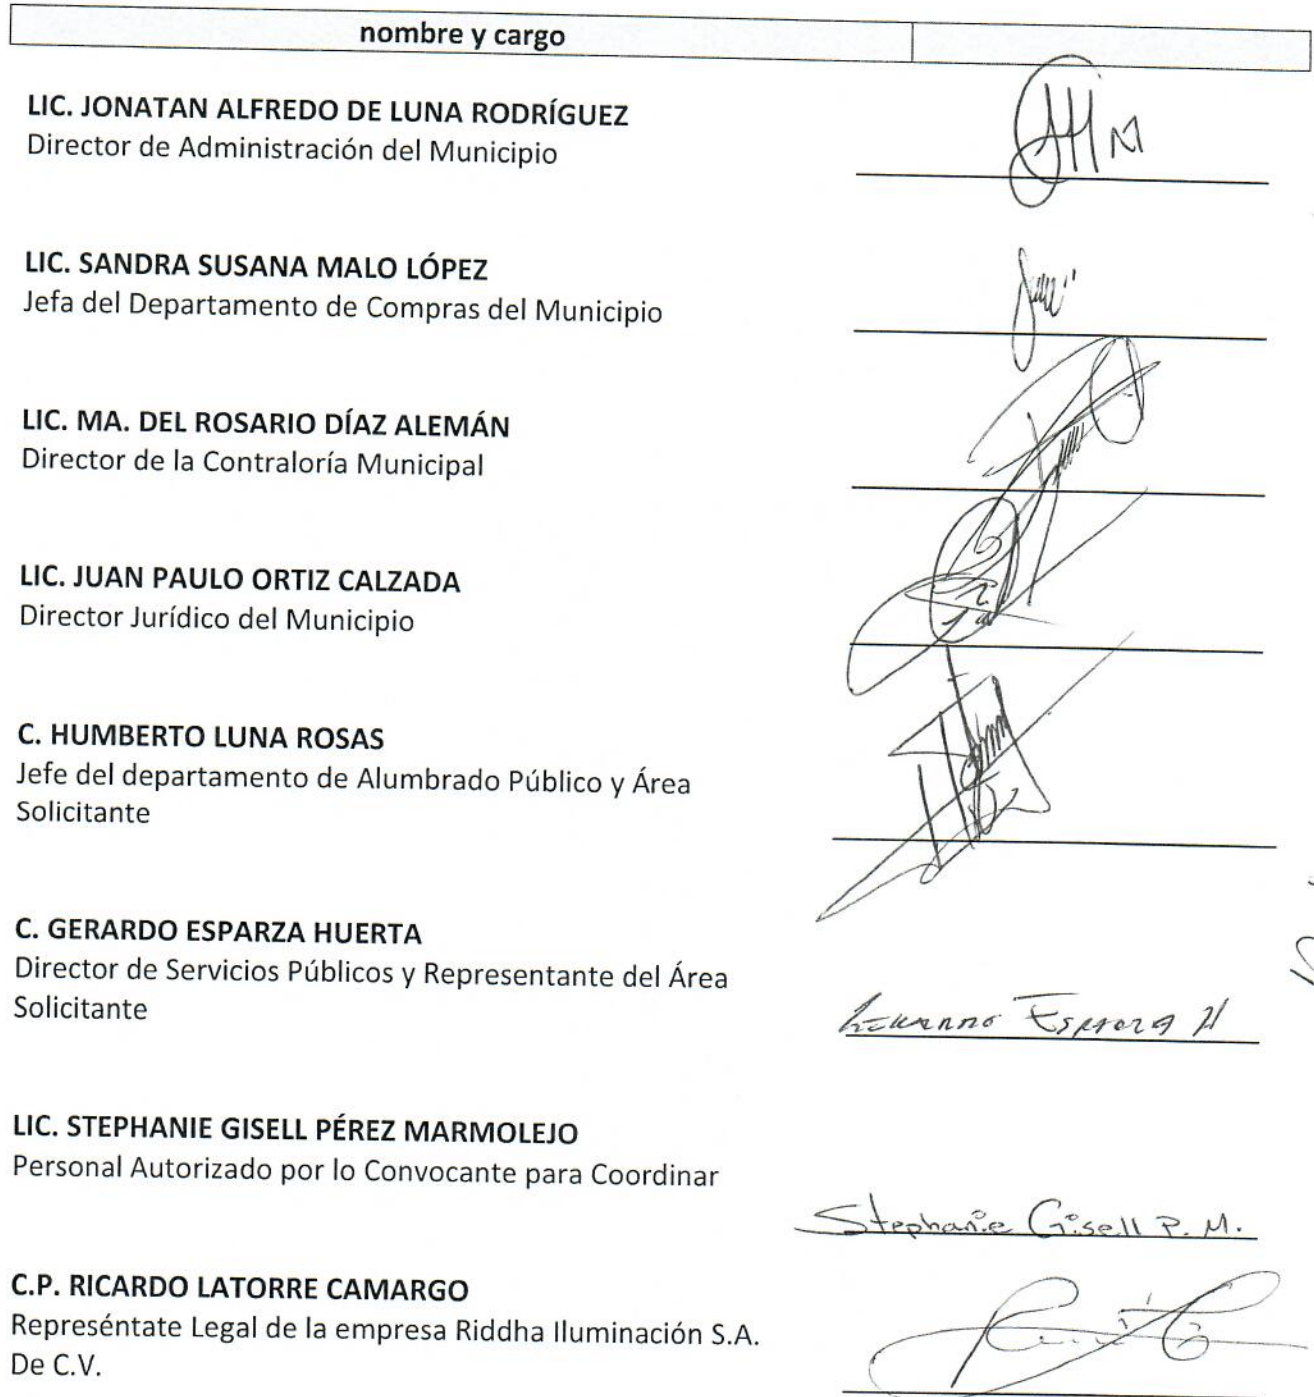 nombre y cargo
LIC. JONATAN ALFREDO DE LUNA RODRÍGUEZ
Director de Administración del Municipio
LIC. SANDRA SUSANA MALO LÓPEZ
Jefa del Departamento de Compras del Municipio
LIC. MA. DEL ROSARIO DÍAZ ALEMÁN
Director de la Contraloría Municipal
LIC. JUAN PAULO ORTIZ CALZADA
Director Jurídico del Municipio
C. HUMBERTO LUNA ROSAS
Jefe del departamento de Alumbrado Público y Área
Solicitante
C. GERARDO ESPARZA HUERTA
Director de Servicios Públicos y Representante del Área
Solicitante
Gerardo Esparza H
LIC. STEPHANIE GISELL PÉREZ MARMOLEJO
Personal Autorizado por lo Convocante para Coordinar
Stephanie Gisell P. M.
C.P. RICARDO LATORRE CAMARGO
Represéntate Legal de la empresa Riddha Iluminación S.A.
De C.V.